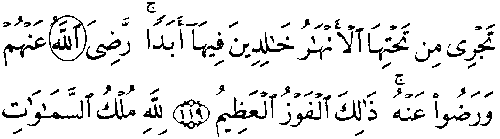 تَجْرِى مِن تَحْتِهَا ٱلْأَنْهَٰرُ خَٰلِدِينَ فِيهَآ أَبَدًا ۚ رَّضِىَ ٱللَّهُ عَنْهُمْ
وَرَضُوا۟ عَنْهُ ۚ ذَٰلِكَ ٱلْفَوْزُ ٱلْعَظِيمُ ١١٩ لِلَّهِ مُلْكُ ٱلسَّمَٰوَٰتِ